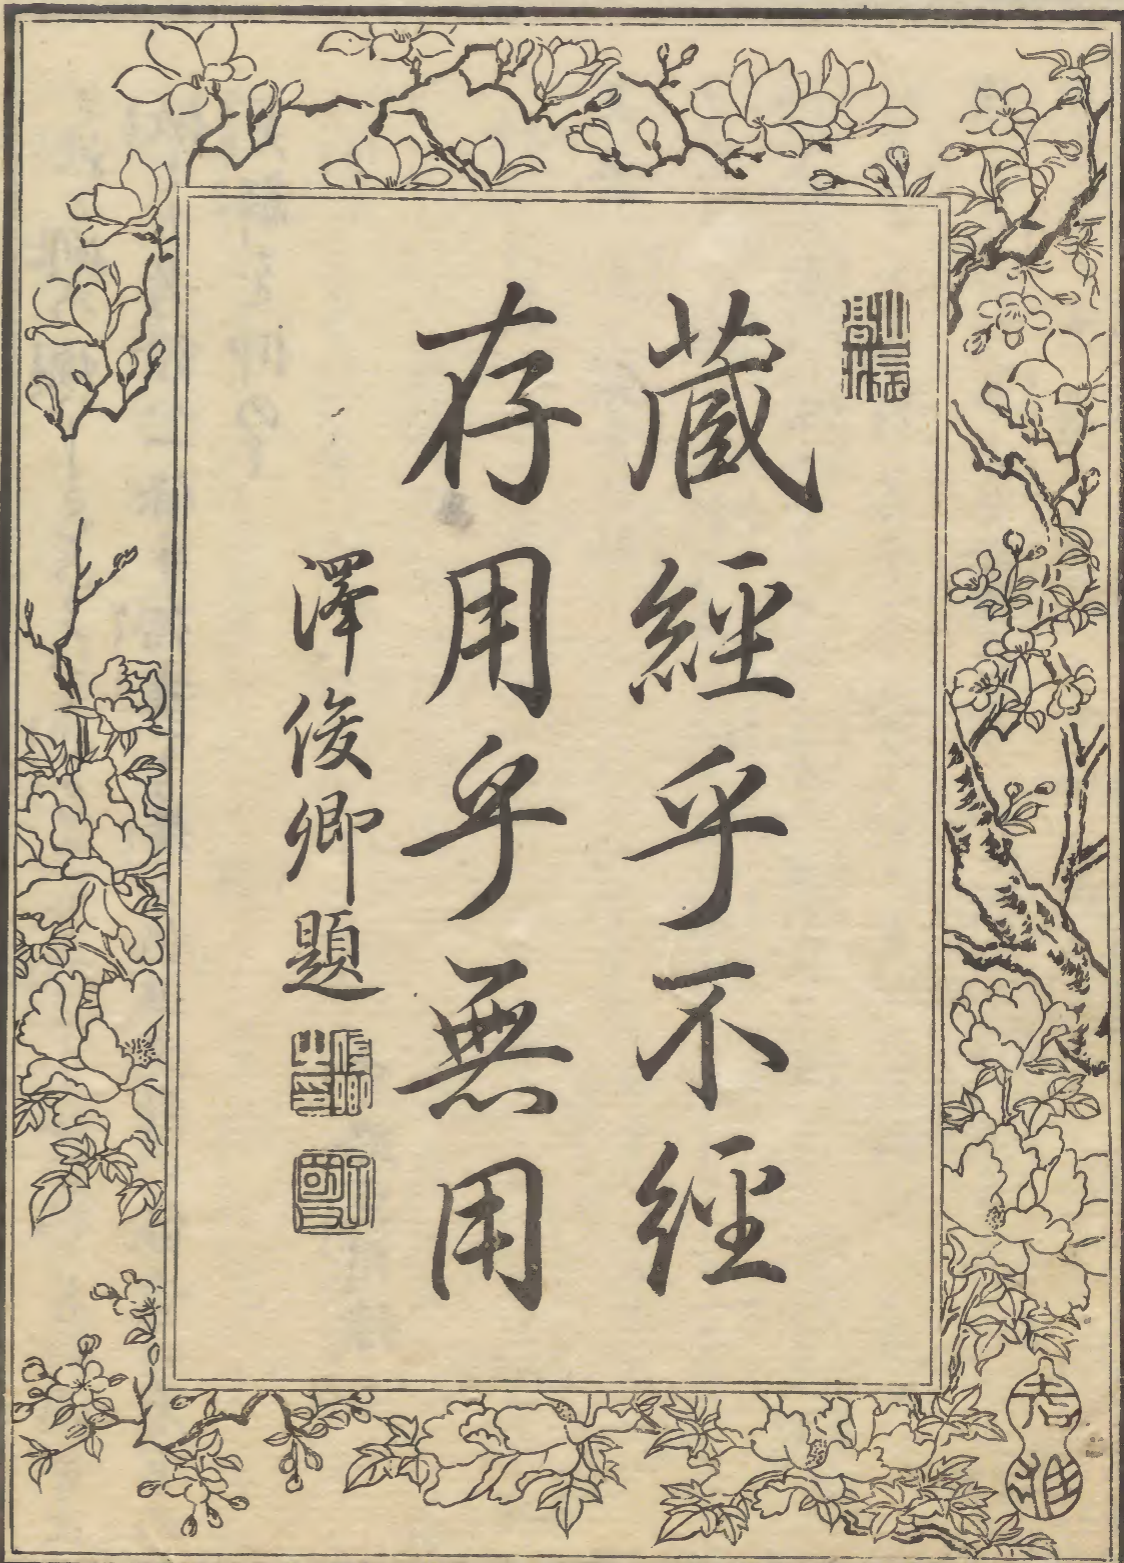 蔵經乎不經
存用乎無用
澤俊卿題